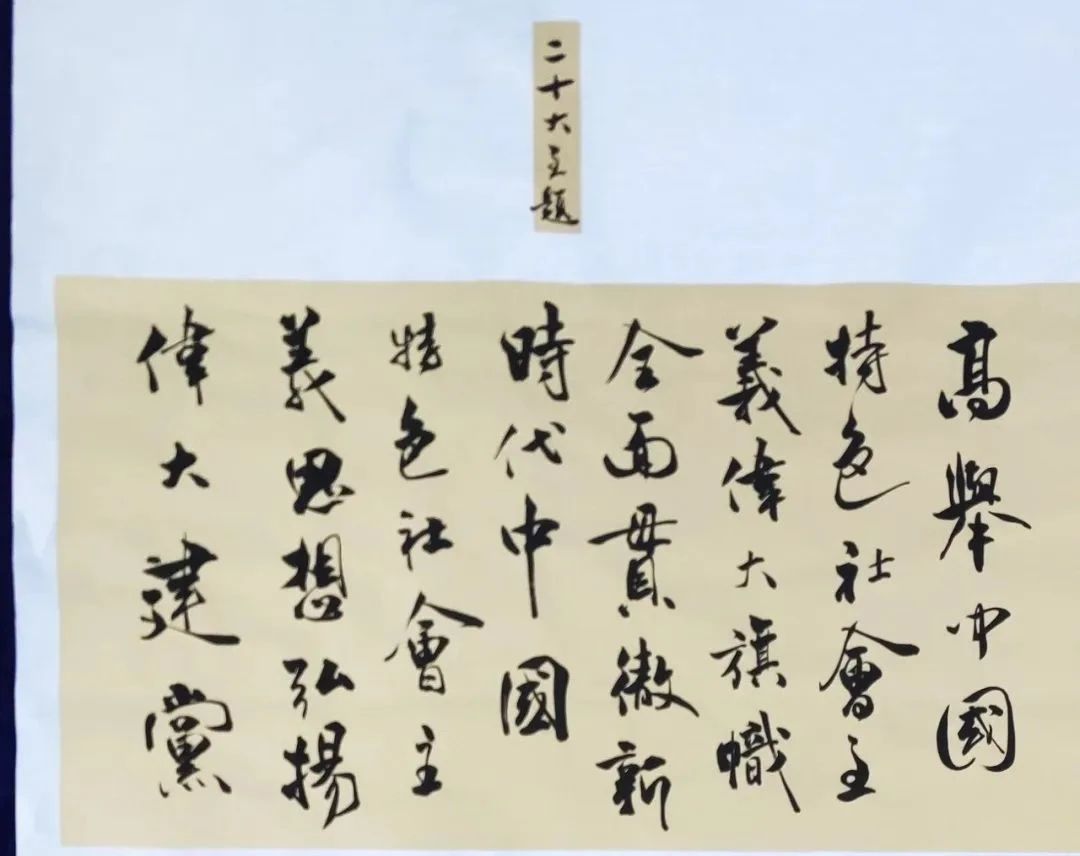 二十大主題
高舉中國
特色社會主
義偉大旗幟
全面貫徹新
時代中國
特色社會主
義思想弘揚
偉大建黨